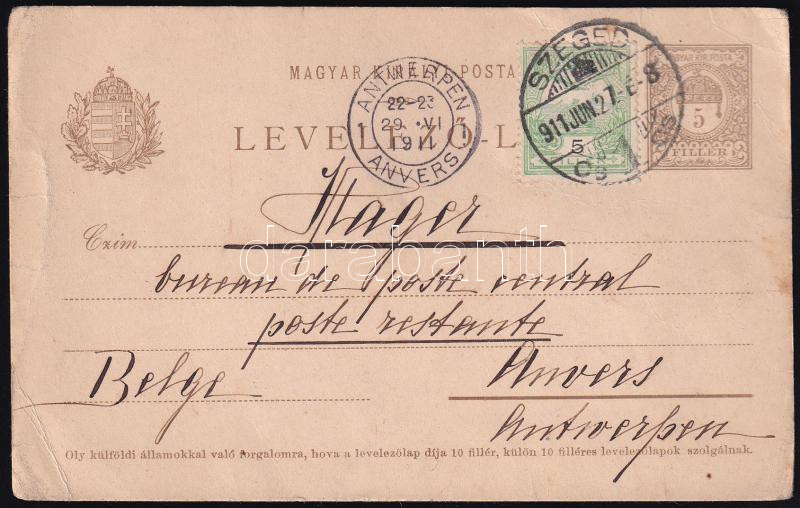 MAGYAR KIR. POSTA
LEVELEZŐ-L
ANTWERPEN
22-23
29 VI
1911
ANVERS
SZEGED
911 JUN.27.-E-8
5
MAGYAR KIR. POSTA
5
FILLÉR
Czim
Mager
bureau de poste central
poste restante
Belge
Anvers
Antwerpen
darabanth
Oly külföldi államokkal való forgalomra, hova a levelezőlap díja 10 fillér, külön 10 filléres levelezőlapok szolgálnak.